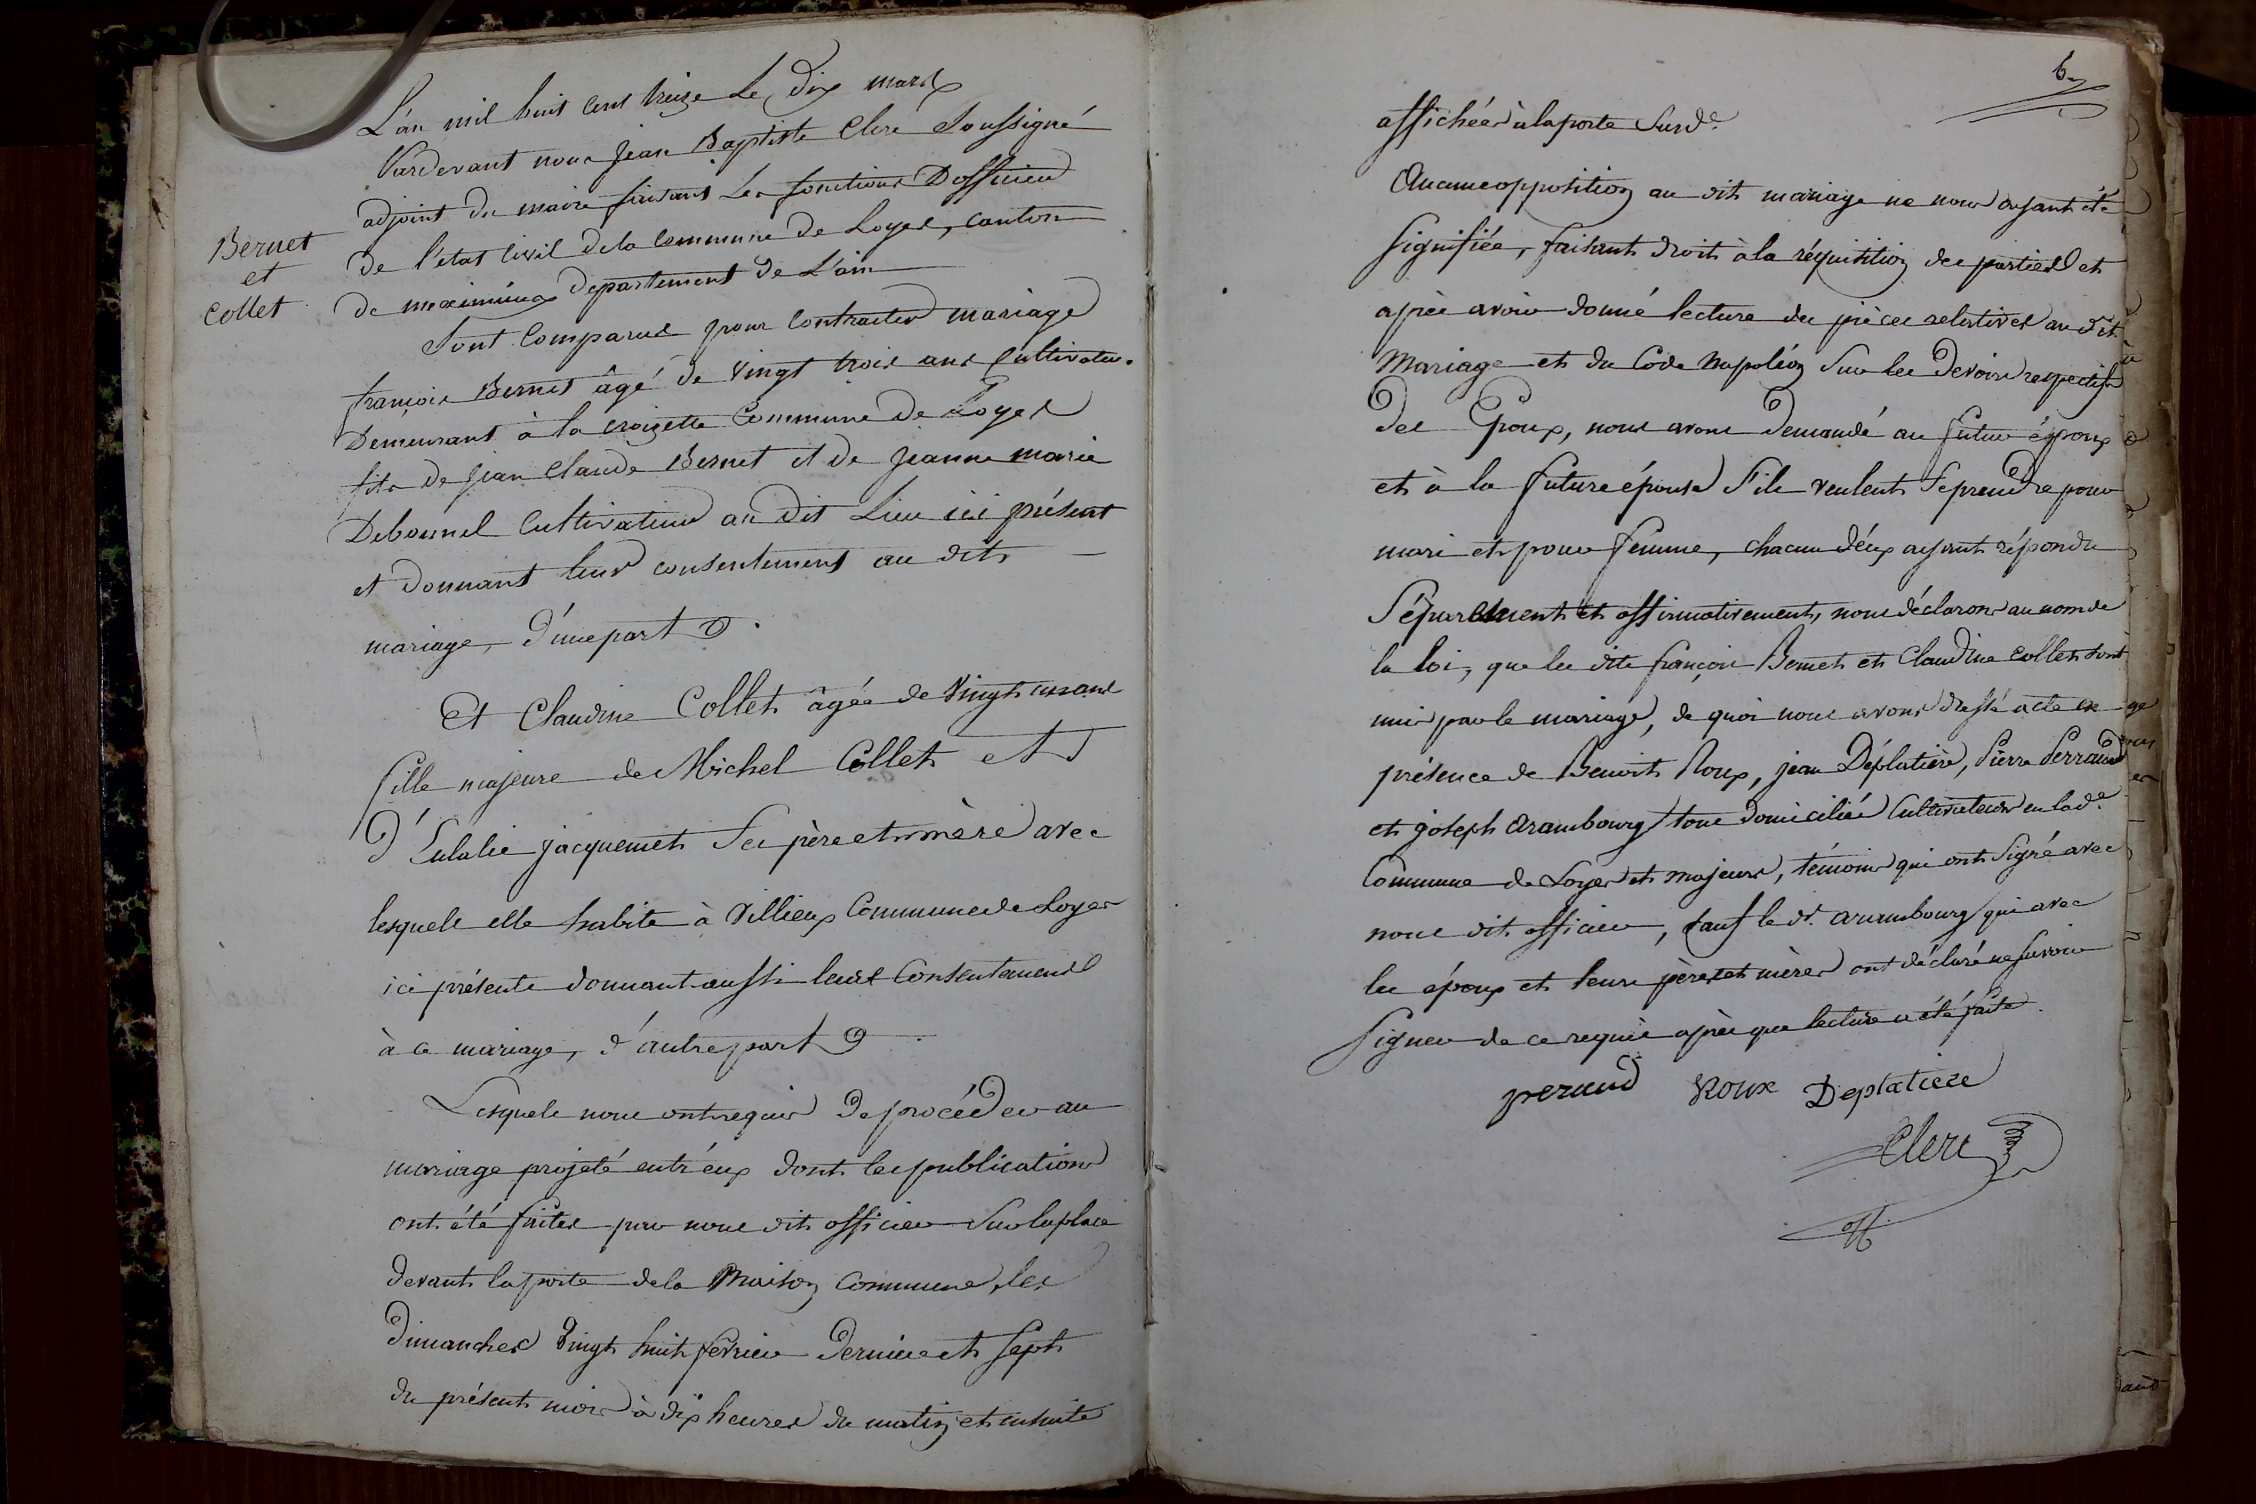 Bernet
et
Collet
L'an mil huit cent treize Le dix mars
Pardevant nous Jean Baptiste Clerc Soussigné
adjoint du maire faisant Les fonctions D'officier
de l'état Civil de la Commune de Loyes, canton
de meximieux departement de L'ain
Sont Comparus pour Contracter mariage
françois Bernet âgé de vingt trois ans Cultivateur
Demeurant à la croizette Commune de Loyes
fils de Jean Claude Bernet et de Jeanne marie
Debournel Cultivateurs au dit Lieu ici présent
et donnant leur consentement au dit
mariage, d'une part
Et Claudine Collet âgée de Vingt un ans
fille majeure de Michel Collet et
d'Eulalie jacquemet Ses père et mère avec
lesquels elle habite à Villieux Commune de Loyes
ici présents donnant aussi leurs Consentements
à ce mariage, d'autre part
Lesquels nous ont requis De procéder au
mariage projeté entr'eux dont les publications
ont été faites par nous dit officier Sur la place
devant la porte de la Maison Commune, les
Dimanches Vingt huit février Dernier et Sept
du présent mois à dix heures du matin et ensuite
6
affichées à la porte Susde
Aucune opposition au dit mariage ne nous ayant été
Signifiée, faisant droit à la réquisition des parties et
après avoir donné lecture des pièces relatives au dit
Mariage et du Code Napoléon Sur les Devoirs respectifs
Des Epoux, nous avons Demandé au futur époux
et à la future épouse S'ils veulent Se prendre pour
mari et pour femme, chacun d'eux ayant répondu
Séparement et affirmativement, nous déclarons au nom de
la loi, que les dits françois Bernet et Claudine Collet sont
unis par le mariage, de quoi nous avons dressé acte en
présence de Benoit Roux, jean Déplatière, Pierre Perraud
et joseph Arambourg tous domiciliés Cultivateurs en lade
Commune de Loyes et majeurs, témoins qui ont Signé avec
nous dit officier, sauf le dt. arambourg qui avec
les époux et leurs pères et mères ont déclaré ne savoir
Signer de ce requis après que lecture a été faite
peraud Roux Deplatiere
Clerc